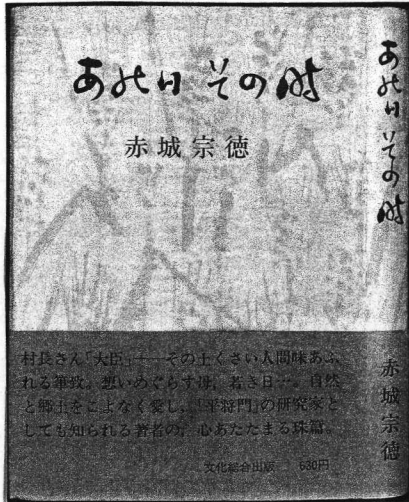 あの日 その時
赤城宗徳
村長さん「大臣」──その土くさい人間味あふ
れる筆致。想いめぐらす母、若き日…。自然
と郷土をこよなく愛し、「平将門」の研究家と
しても知られる著者の、心あたたまる珠篇。
文化総合出版 630円
あの日 その時
赤城宗徳